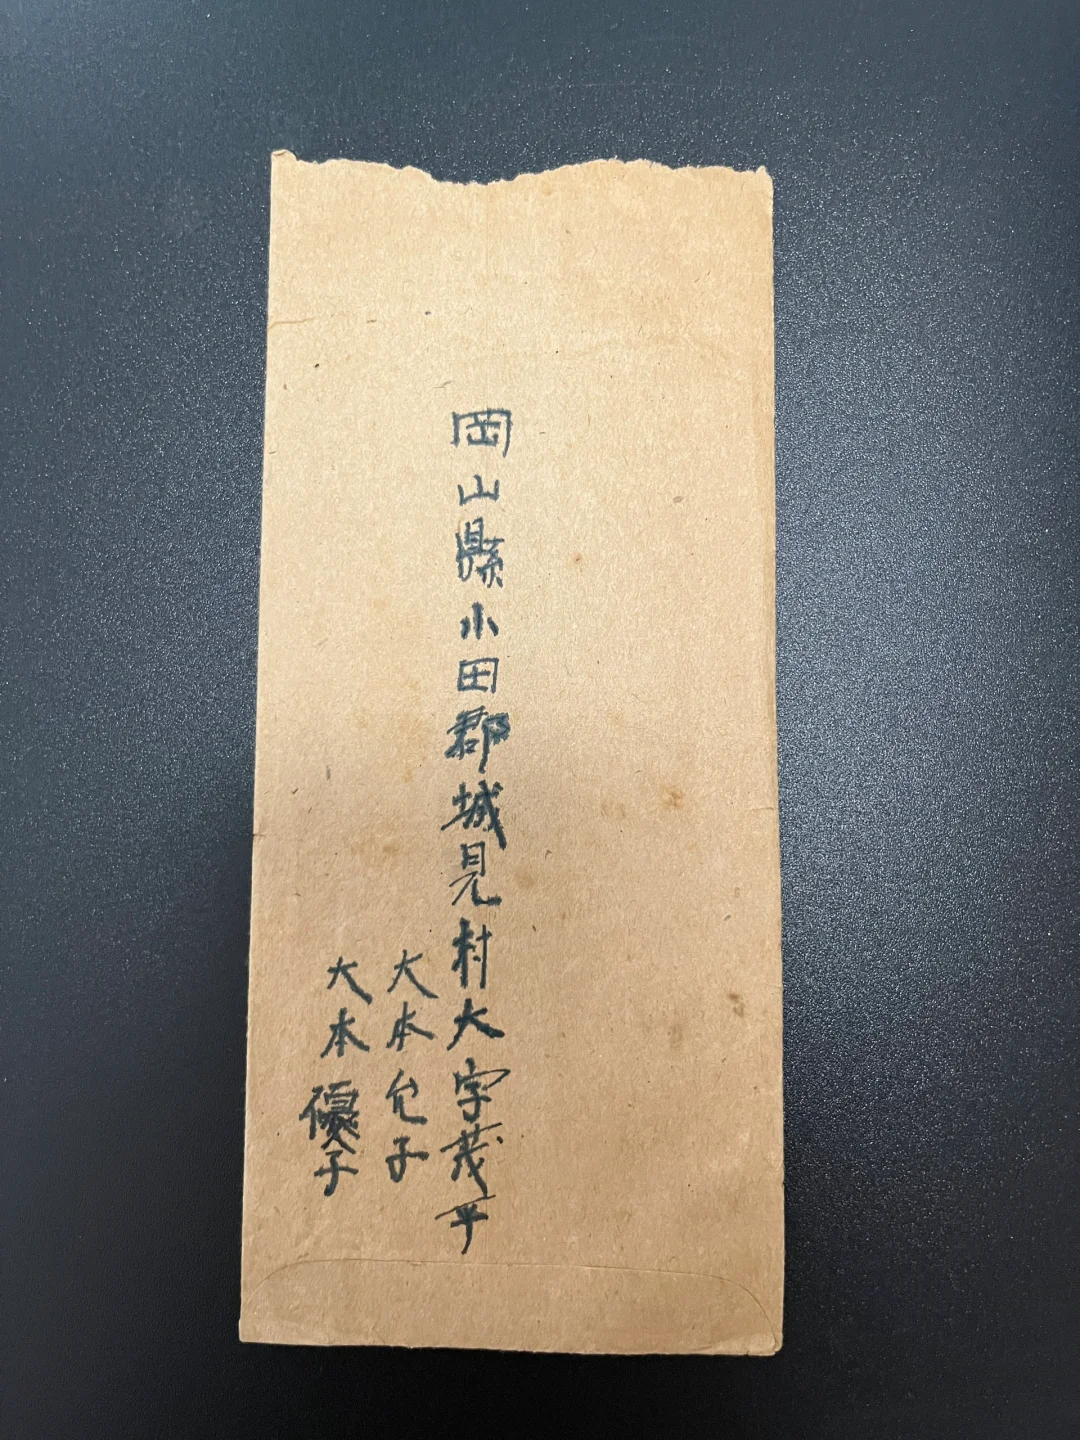 岡山縣小田郡城見村大字茂平
大本允子
大本優子